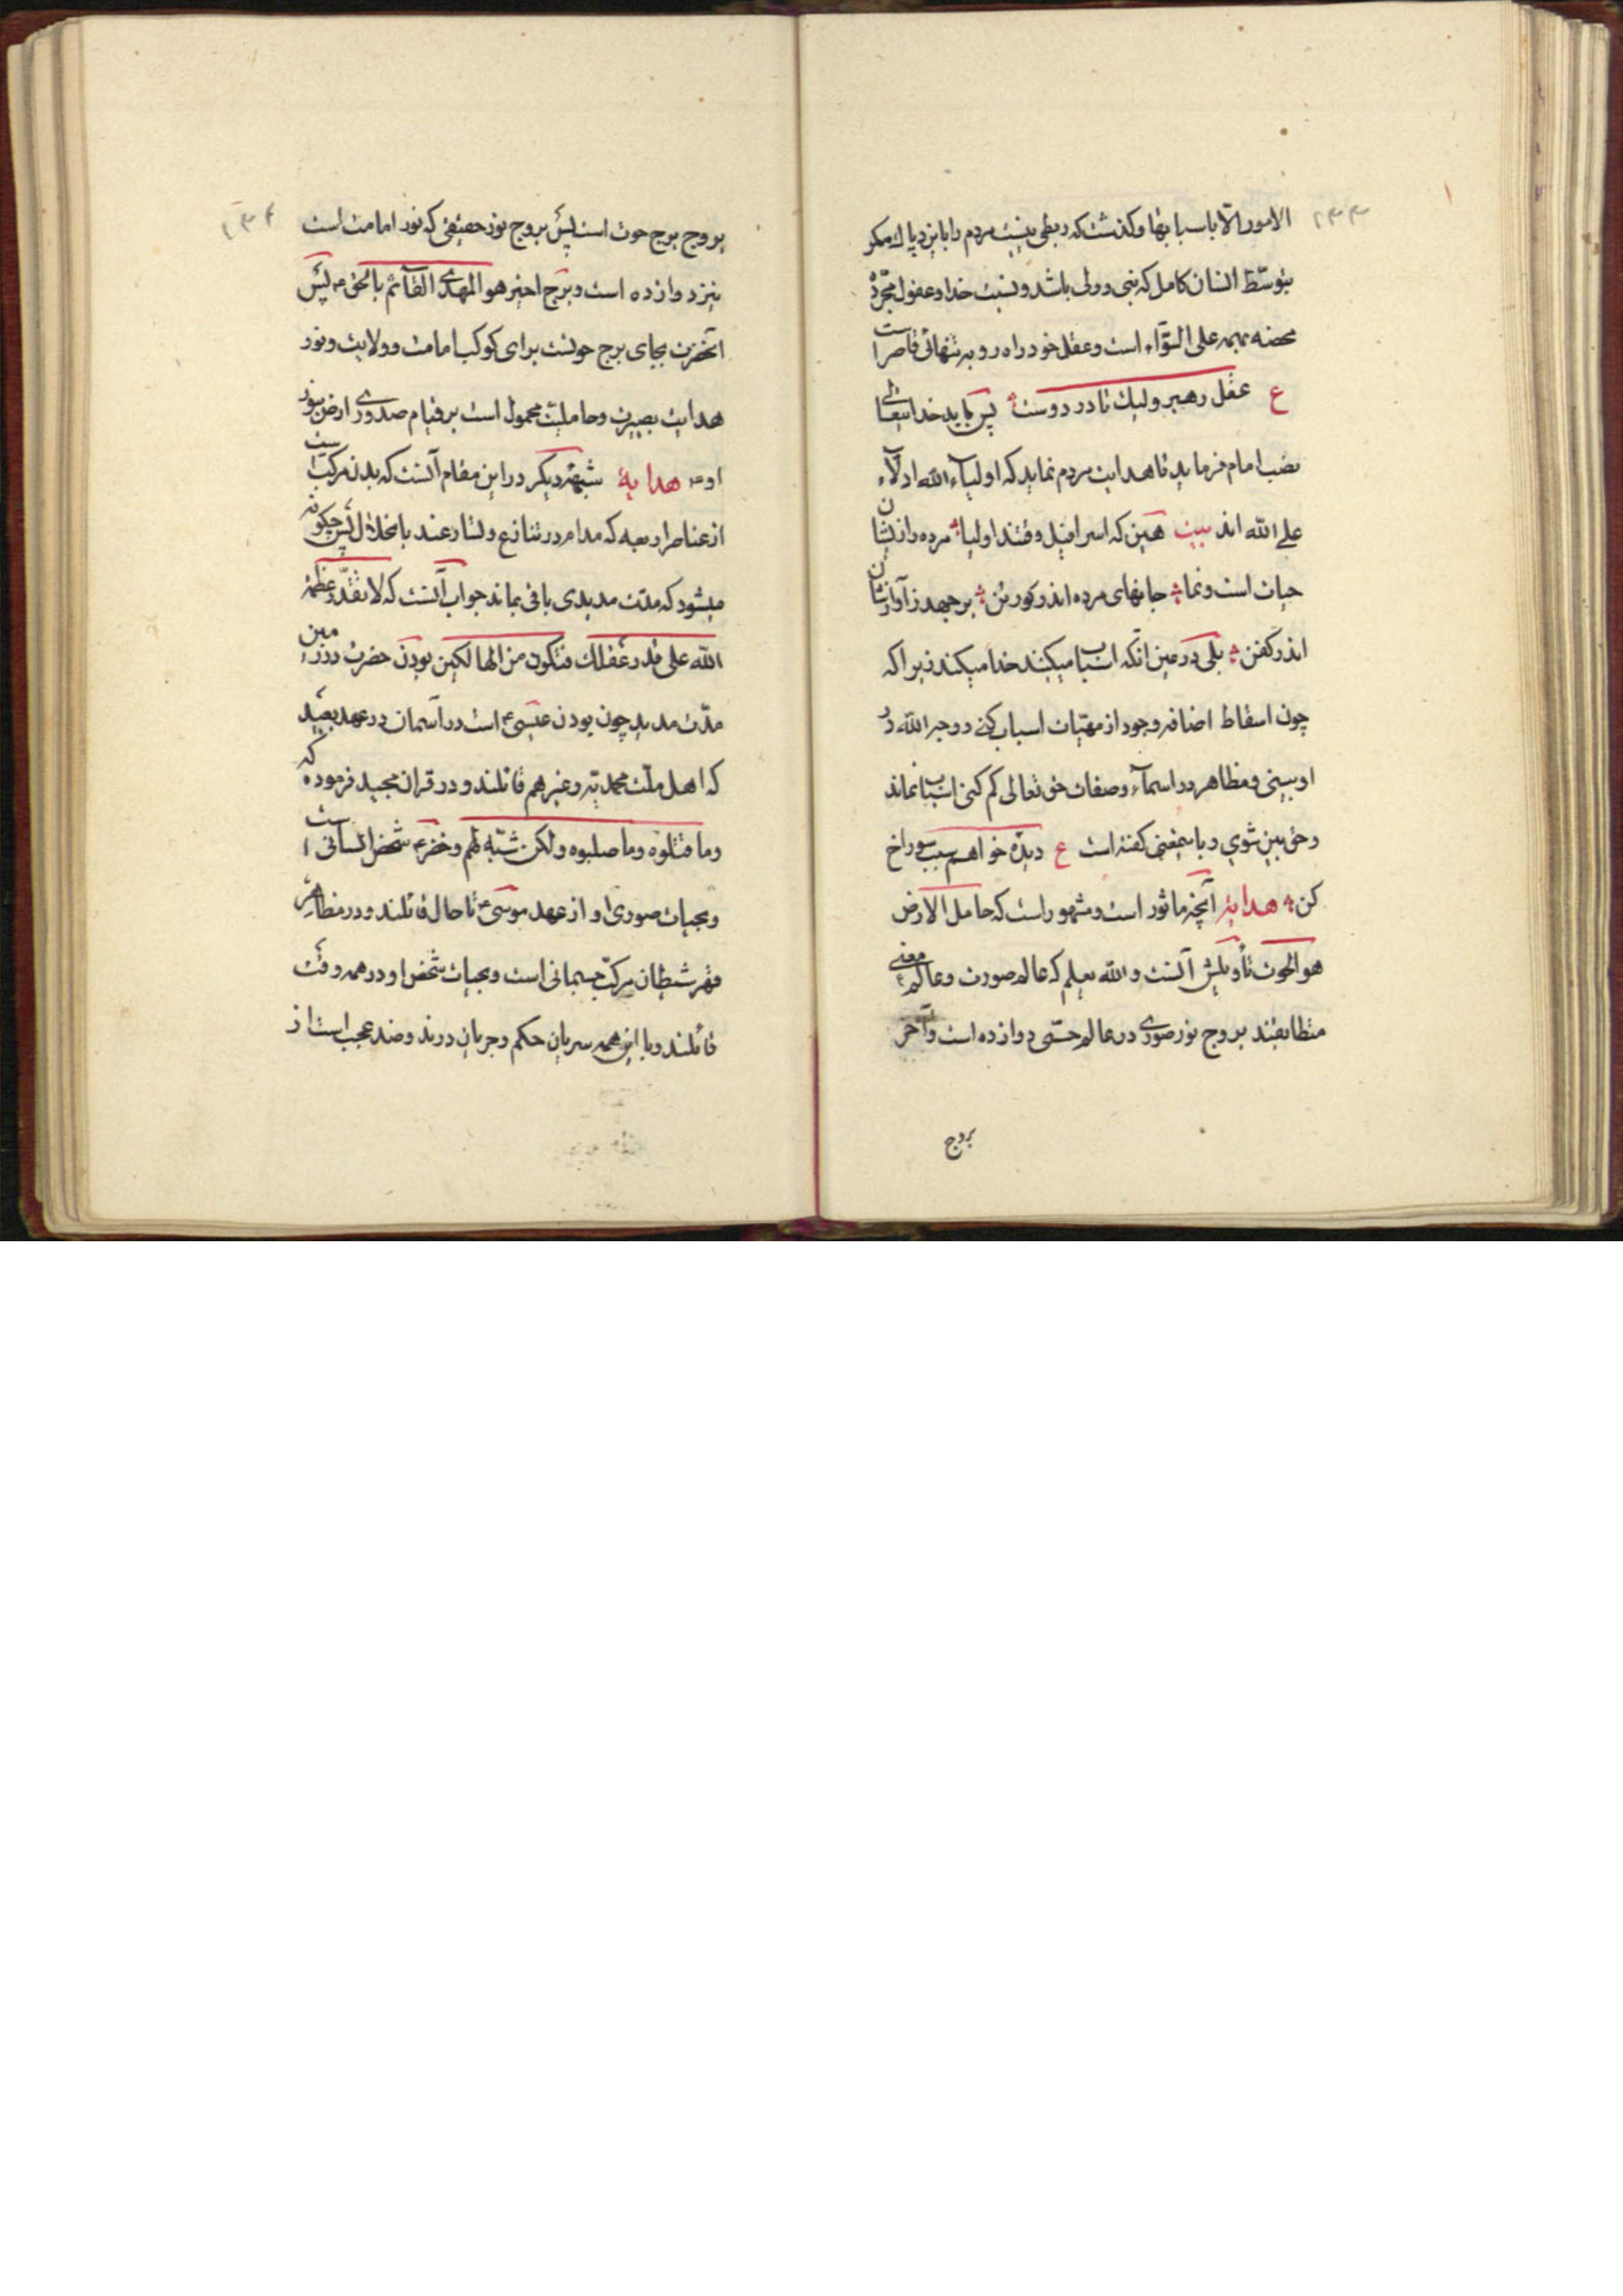 ۱۳۳
الامور الّا باسبابها و کذشت که ربطی نیست مردم را بایزد پاک مکر
بتوسّط انسان کامل که نبی و ولی باشد و نسبت خدا و عقول مجرّدهٔ
محضه بهمه علی السّواء است و عقل خود راه رو به تنهائی قاصر است
ع عقل رهبر ولیک تا در دوست پس باید خدایتعالی
نصب امام فرماید تا هدایت مردم نماید که اولیاء الله ادلّاء
علی الله اند بیت هین که اسرافیل وقتند اولیا مرده را زیشان
حیات است و نما جانهای مرده اندر کور تن بر جهد ز آوازشان
اندر کفن بلی در عین انکه اسباب میکنند خدا میکند زیرا که
چون اسقاط اضافه وجود از مهیّات اسباب کنی و وجه الله در
او بینی و مظاهر در اسماء و صفات حق تعالی کم کنی اسباب نماند
و حق بین شوی و باینمعنی کفته است ع دیدهٔ خواهم سبب سوراخ
کن هدایة آنچه ماثور است و مشهور است که حامل الارض
هو الحوت تأویلش آنست و الله یعلم که عالم صورت و عالم معنی
متطابقند بروج نور صوری در عالم حسّی دوازده است و آخر
بروج
۱۳۴
بروج برج حوت است پس بروج نور حقیقی که نور امامت است
نیز دوازده است و برج اخیر هو المهدی القائم بالحق ع پس
آنحضرت بجای برج حوتست برای کوکب امامت و ولایت و نور
هدایت بصیرت و حاملیت محمول است بر قیام صدوری ارض بنور
او ع هدایة شبههٔ دیکر در این مقام آنست که بدن مرکب است
از عناصر اربعه که مدام در تنازع و تسارعند بانحلال پس چکونه
میشود که مدّت مدیدی باقی بماند جواب آنست که لا تقدّر عظمة
الله علی قدر عقلک فتکون من الهالکین بودن حضرت در زمین
مدّت مدید چون بودن عیسی ع است در آسمان در عهد بعید
که اهل ملّت محمدیّه و غیرهم قائلند و در قران مجید فرموده که
و ما قتلوه و ما صلبوه و لکن شبّه لهم و خضر ع شخص انسانی است
و بحیات صوری او از عهد موسی ع تا حال قائلند و در مظاهر
قهر شیطان مرکّب جسمانی است و بحیات شخص او در همه وقت
قائلند و با این همه سریان حکم و جریان در ند و ضد عجب است از